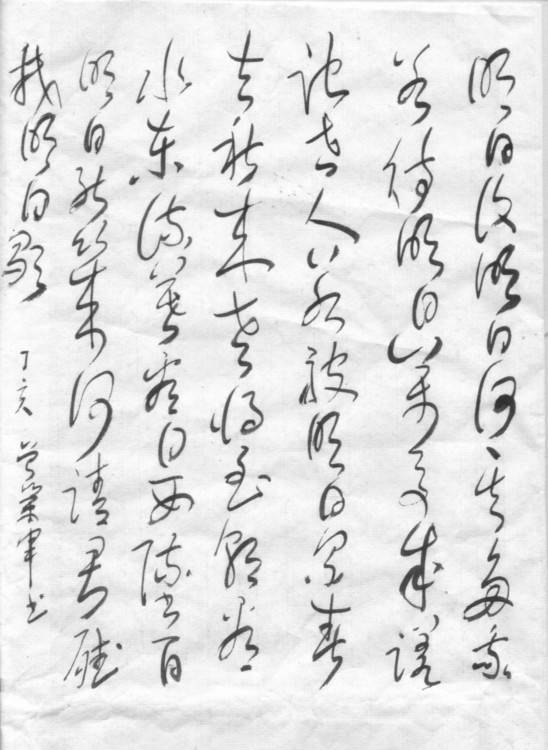 明日復明日何其多我
若待明日萬事成蹉
跎世人苦被明日累春
去秋来老將至朝看
水東流暮看日西墜百
明日能幾何請君聽
我明日歌
丁亥 書